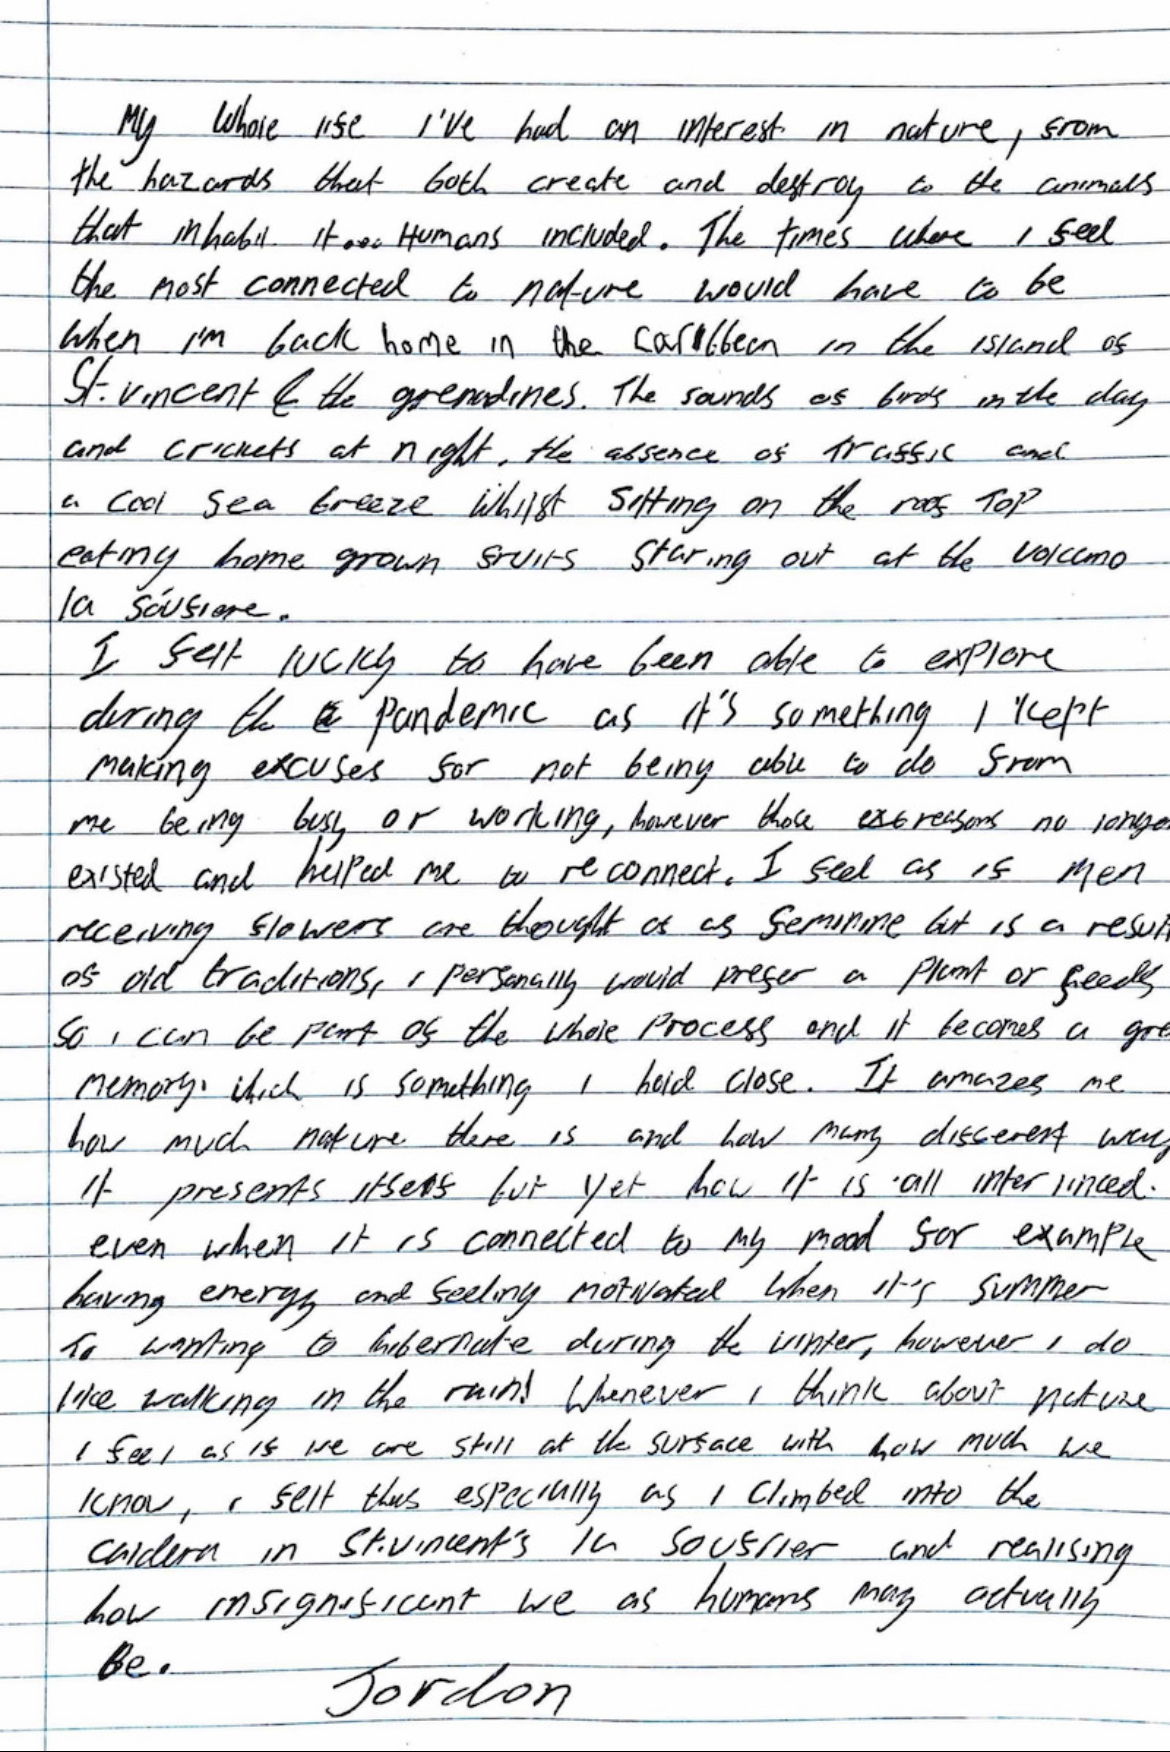 My whole life I've had an interest in nature, from
the hazards that both create and destroy to the animals
that inhabit it.... Humans included. The times where I feel
the most connected to nature would have to be
when I'm back home in the Caribbean in the island of
St. vincent & the grenadines. The sounds of birds in the day
and crickets at night, the absence of traffic and
a cool sea breeze whilst sitting on the roof top
eating home grown fruits staring out at the volcano
la soufriere.
I felt lucky to have been able to explore
during the pandemic as it's something I kept
making excuses for not being able to do from
me being busy or working, however those reasons no longer
existed and helped me to reconnect. I feel as if men
receiving flowers are thought of as feminine but is a result
of old traditions, i personally would prefer a plant or seeds
so i can be part of the whole process and it becomes a gre
memory. which is something I hold close. It amazes me
how much nature there is and how many different way
it presents itself but yet how it is all inter linced.
even when it is connected to my mood for example
having energy and feeling motivated when it's summer
To wanting to hibernate during the winter, however i do
like walking in the rain! Whenever i think about nature
i feel as if we are still at the surface with how much we
know, i felt this especially as I climbed into the
caldera in St.vincent's la soufrier and realising
how insignificant we as humans may actually
be.
Jordon